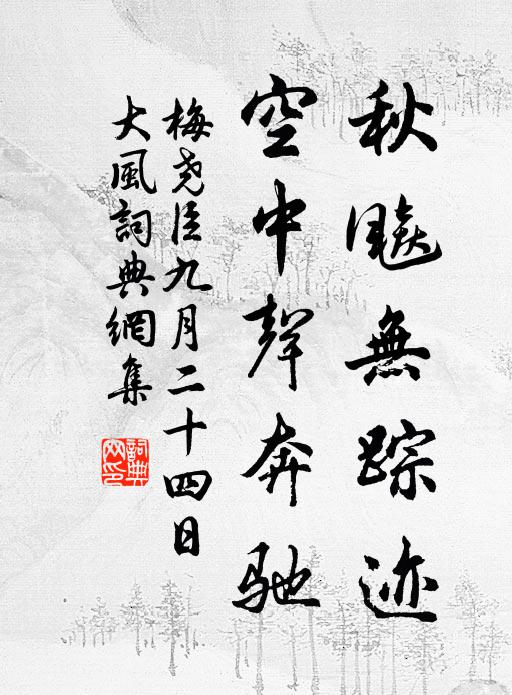 秋飈無踪迹
空中聲奔馳
梅尧臣九月二十四日
大風詞典網集
詞典网印